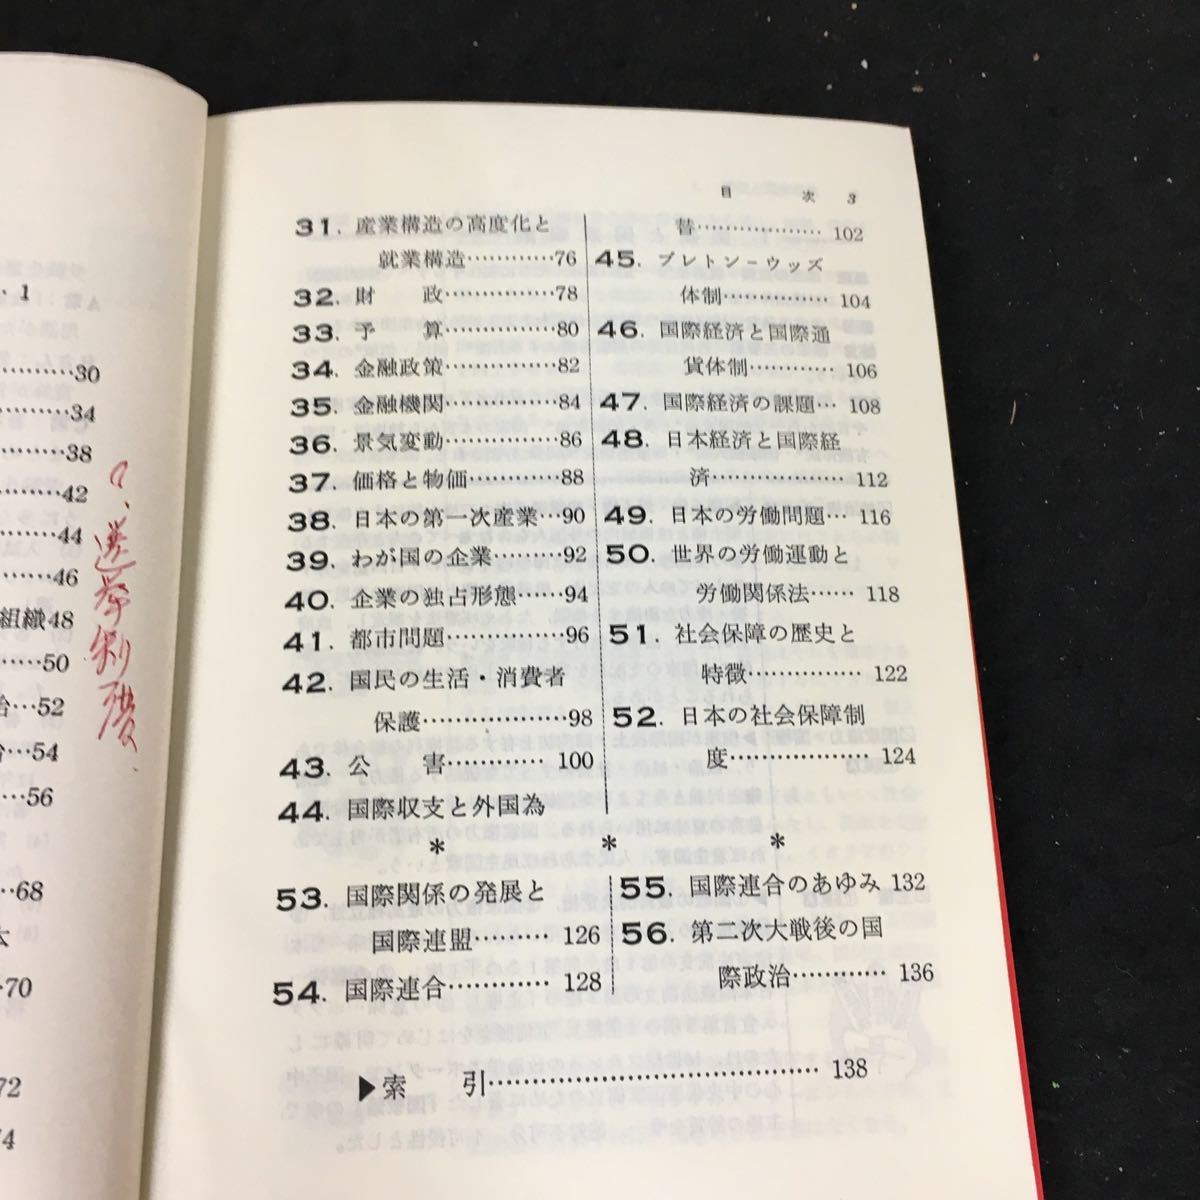 ‥1
………30
………34
………38
……42
……44
……46
組織48
……50
治…52
…54
…56
…68
本
…70
72
74
a、選挙制度
目 次 3
31. 産業構造の高度化と
就業構造…………76
32. 財 政……………78
33. 予 算……………80
34. 金融政策……………82
35. 金融機関……………84
36. 景気変動……………86
37. 価格と物価…………88
38. 日本の第一次産業…90
39. わが国の企業………92
40. 企業の独占形態……94
41. 都市問題……………96
42. 国民の生活・消費者
保護………………98
43. 公 害………… 100
44. 国際収支と外国為
替……………… 102
45. ブレトン－ウッズ
体制…………… 104
46. 国際経済と国際通
貨体制………… 106
47. 国際経済の課題… 108
48. 日本経済と国際経
済……………… 112
49. 日本の労働問題… 116
50. 世界の労働運動と
労働関係法…… 118
51. 社会保障の歴史と
特徴…………… 122
52. 日本の社会保障制
度……………… 124
* * *
53. 国際関係の発展と
国際連盟……… 126
54. 国際連合………… 128
55. 国際連合のあゆみ 132
56. 第二次大戦後の国
際政治………… 136
▶索 引……………………………… 138